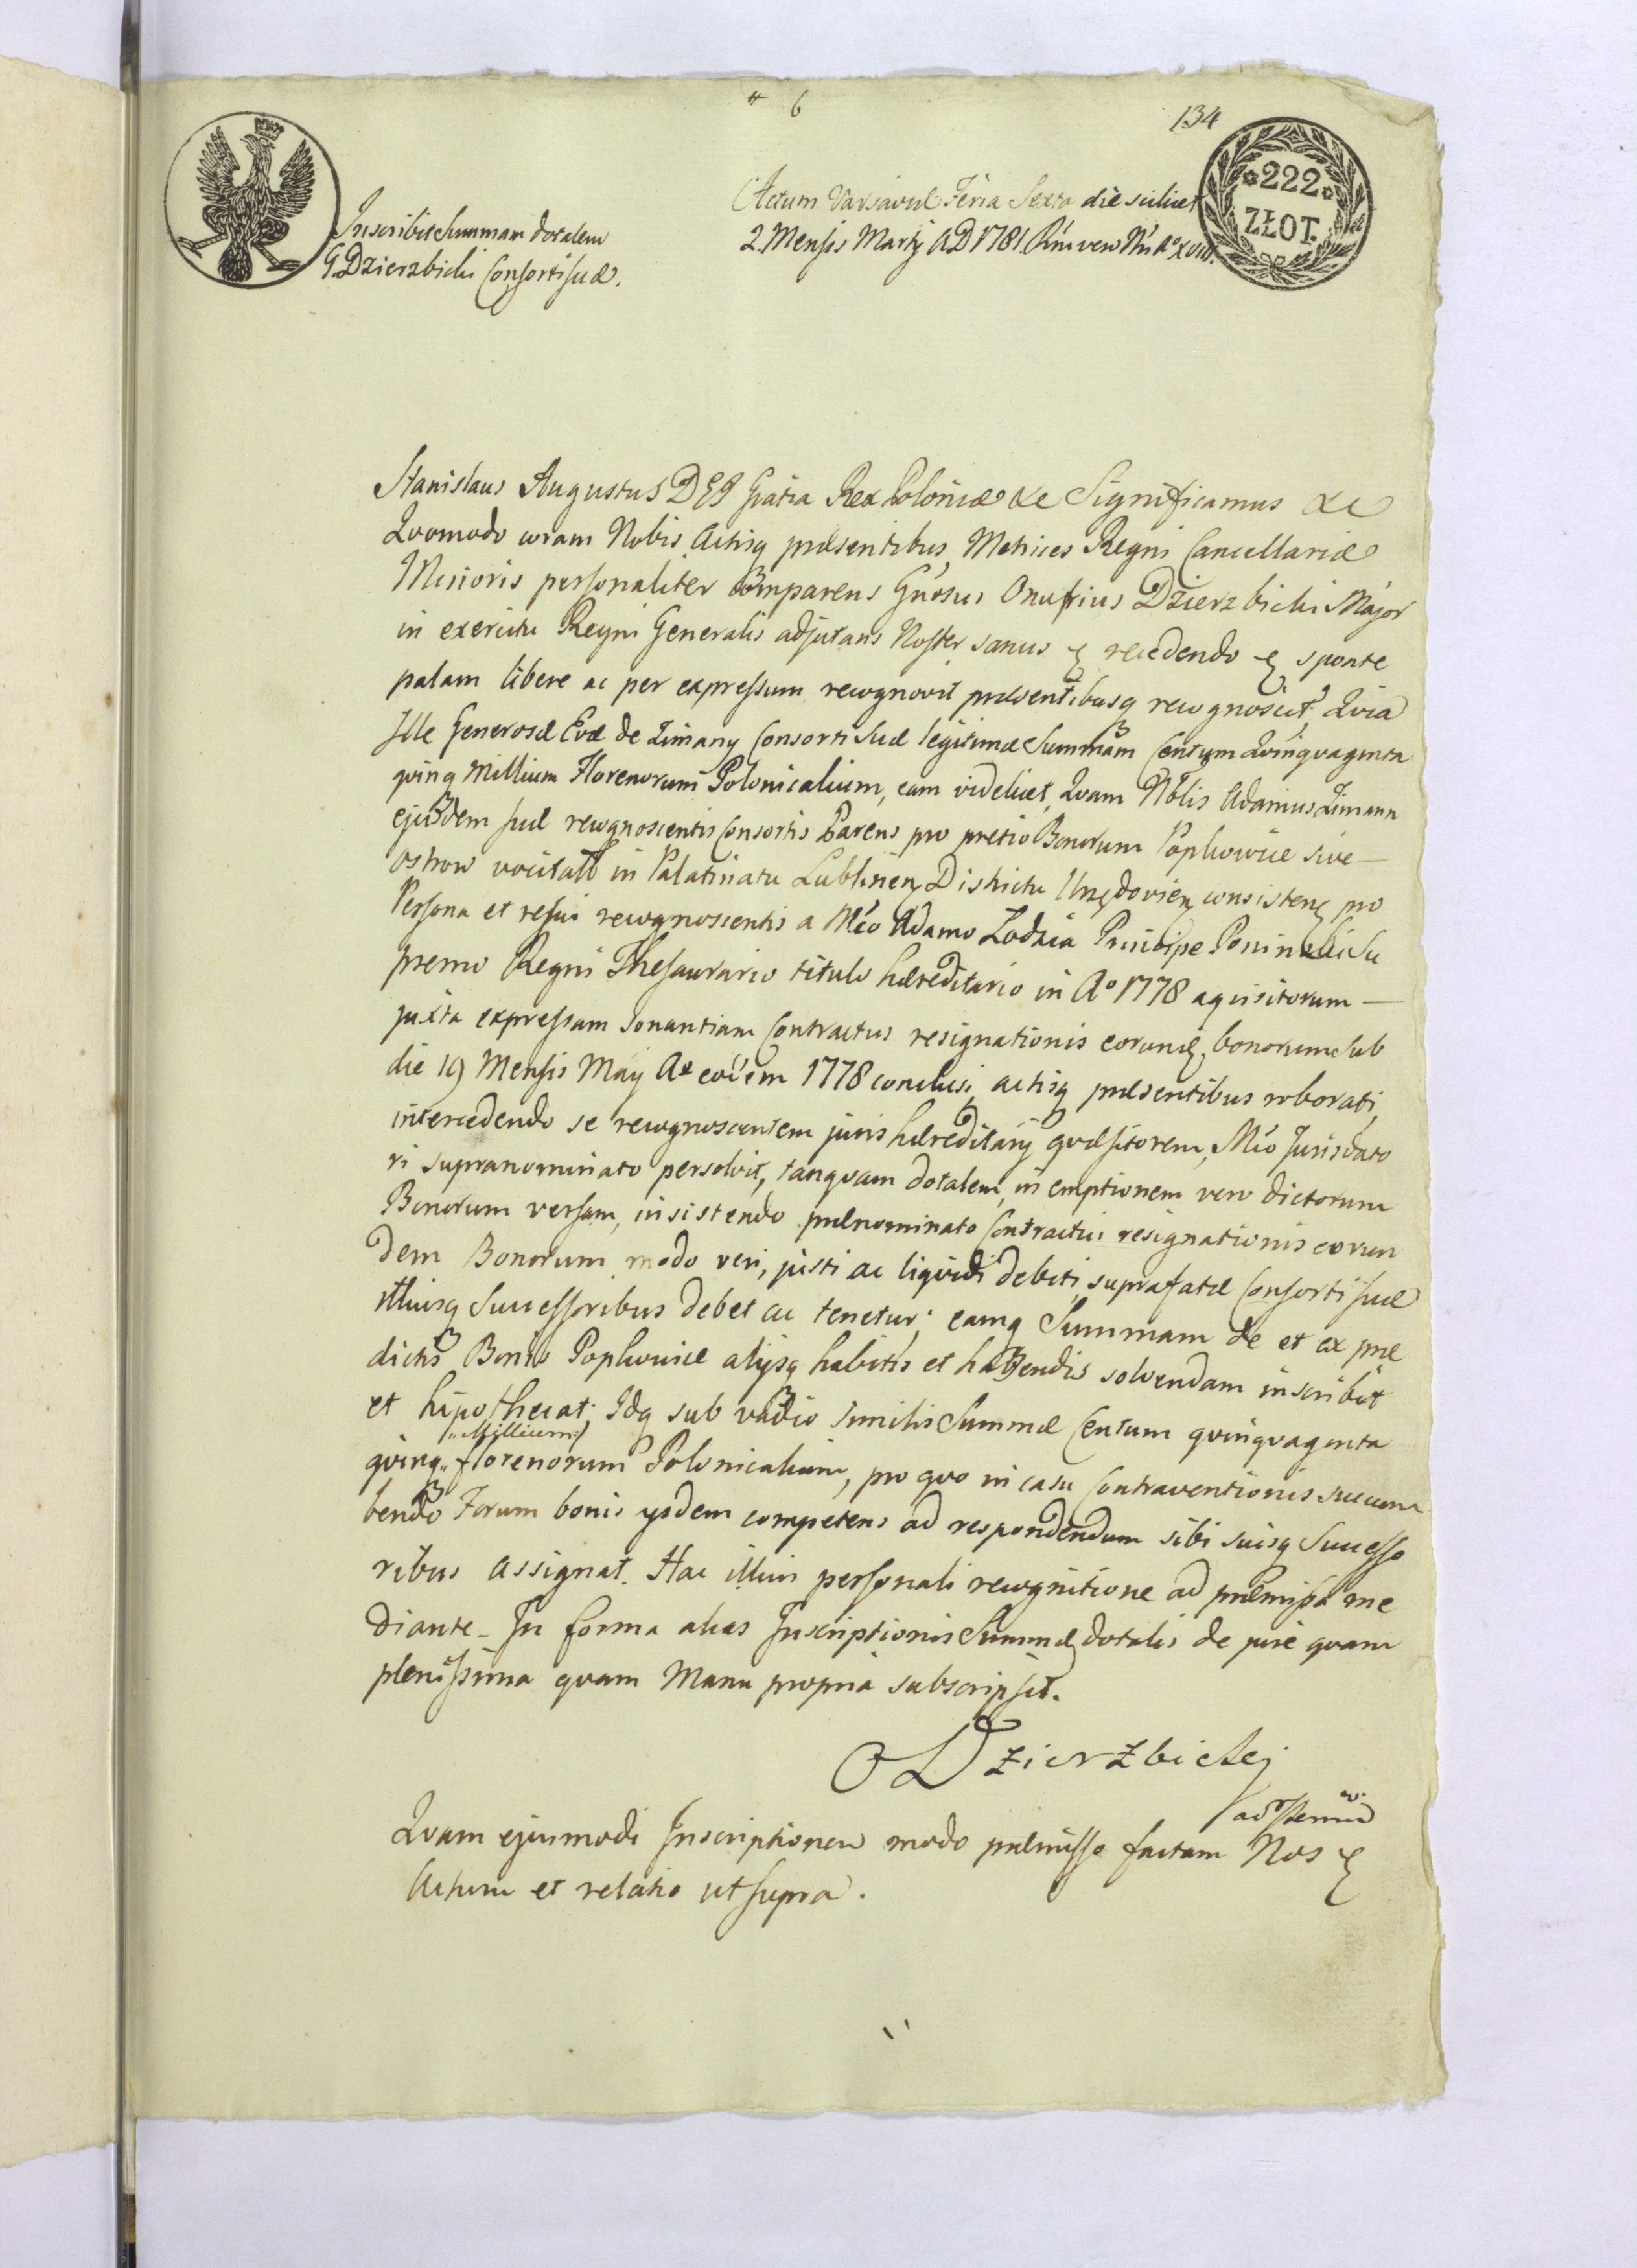 # 6
134
*222*
ZŁOT.
Inscribit Summam dotalem
G. Dzierzbicki Consorti suæ.
Actum Varsaviæ Feria Sexta die scilicet
2. Mensis Martij AD 1781. Rńi vero Nŕi Aº XVII.
Stanislaus Augustus DEI Gratia Rex Poloniæ &c Significamus &c
Qvomodo coram Nobis Actisq præsentibus Metrices Regni Cancellariæ
Minoris personaliter comparens Gńosus Onufrius Dzierzbicki Major
in exercitu Regni Generalis adjutans Noster sanus &c recedendo &c sponte
palam libere ac per expressum recognovit præsentibusq recognoscit, Qvia
Ille Generosæ Evæ de Zimany Consorti suæ legitimæ Summam Centum Qvinqvaginta
qvinq Millium Florenorum Polonicalium, eam videlicet, Qvam Nobĺis Adamus Zimann
ejusdem suæ recognoscentis Consortis Parens pro pretio Bonorum Popkowice sive—
Ostrow vocitatt in Palatinatu Lublinen Districtu Urzędovien consisten pro
Persona et re sui recognoscentis a Mĺco Adamo Lodzia Principe Poninski Su
premo Regni Thesaurario titulo hæreditario in Aº 1778 aqvisitorum —
juxta expressam sonantiam Contractus resignationis eorund bonorum sub
die 19 Mensis Maij Aº eodem 1778 conclusi, actisq præsentibus roborati,
intercedendo se recognoscentem juris hæreditarij qvæsitorem, Mĺco Jurisdato
ri supranominato persolvit, tanqvam dotalem, in emptionem vero dictorum
Bonorum versam, insistendo prænominato Contractui resignationis eorun
dem Bonorum modo veri, justi ac liqvidi debiti, suprafatæ Consorti suæ
illiusq Successoribus debet ac tenetur; eamq Summam de et ex præ
dictis Bonis Popkowice alijsq habitis et habendis solvendam inscribit
et hipothecat; Idq sub vadio similis Summæ Centum qvinqvaginta
qvinq „Millium" florenorum Polonicalium, pro qvo in casu Contraventionis succum
bendo Forum bonis ijsdem competens ad respondendum sibi suisq Successo
ribus assignat. Hac illius personali recognitione ad præmissa me
diante_ In forma alias Inscriptionis Summæ dotalis de jure qvam
plenissima qvam Manu propria subscripsit.
O Dzierzbicki
Qvam ejusmodi Inscriptionem modo præmisso factam Nos &c
Actum et relatio ut supra.